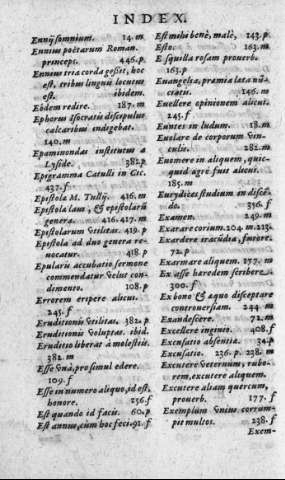 INDEX.
Ennij somnium. 14.m
Ennius poëtarum Roman.
princeps. 446.p
Ennius tria corda gessit, hoc
est, tribus linguis locutus
est. ibidem.
Ebdem redire. 187.m
Ephorus Isocratis discipulus
calcaribus indigebat.
140.m
Epaminondas institutus à
Lyside. 382.p
Epigramma Catulli in Cic.
432.f
Epistola M. Tullij. 416.m
Epistolæ laus, & epistolarũ
genera. 416.417.m
Epistolarum vtilitas. 419.p
Epistolæ ad duo genera re-
uocatur. 418.p
Epularis accubatio sermone
commendatur velut con-
dimento. 108.p
Errorem eripere alicui.
245.f
Eruditionis vtilitas. 382.p
Eruditionis voluptas. ibid.
Eruditio liberat à molestiis.
382.m
Esse vnà, pro simul edere.
109.f
Esse in numero aliquo, id est,
honore. 256.f
Est quando id facit. 60.p
Est annus, cùm hoc feci. 91.f
Est mihi benè, malè, 243.p
Esto: 163.m
E squilla rosam prouerb.
163.p
Euangelia, præmia læta nũ-
ciatis. 146.m
Euellere opinionem alicui.
245.f
Euntes in ludum. 18.m
Euolare de corporum vin-
culis. 282.m
Euomere in aliquem, quic-
quid ægrè fuit alicui.
185.m
Eurydices studium in discẽ-
do. 356.f
Examen. 249.m
Exarare cororum. 204.m 213.
Exardere iracũdia, furore.
72.p
Exarmare aliquem. 177.m
Ex asse hæredem scribere.
300.f
Ex bono & æquo disceptare
controuersiam. 244.m
Exandescere. 72.m
Excellere ingenio. 408.f
Excusatio absentiæ. 34.p
Excusatio. 236.p. 238.m
Excutere veternum, rubo-
rem, excutere aliquem.
Excutere aliam quercum,
prouerb. 177.f
Exemplum vnius corrum-
pit multos. 238.f
Exem-